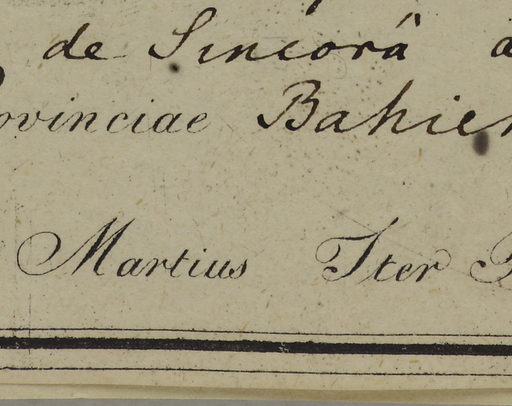 de Sincorâ
ovinciae Bahien
Martius Iter